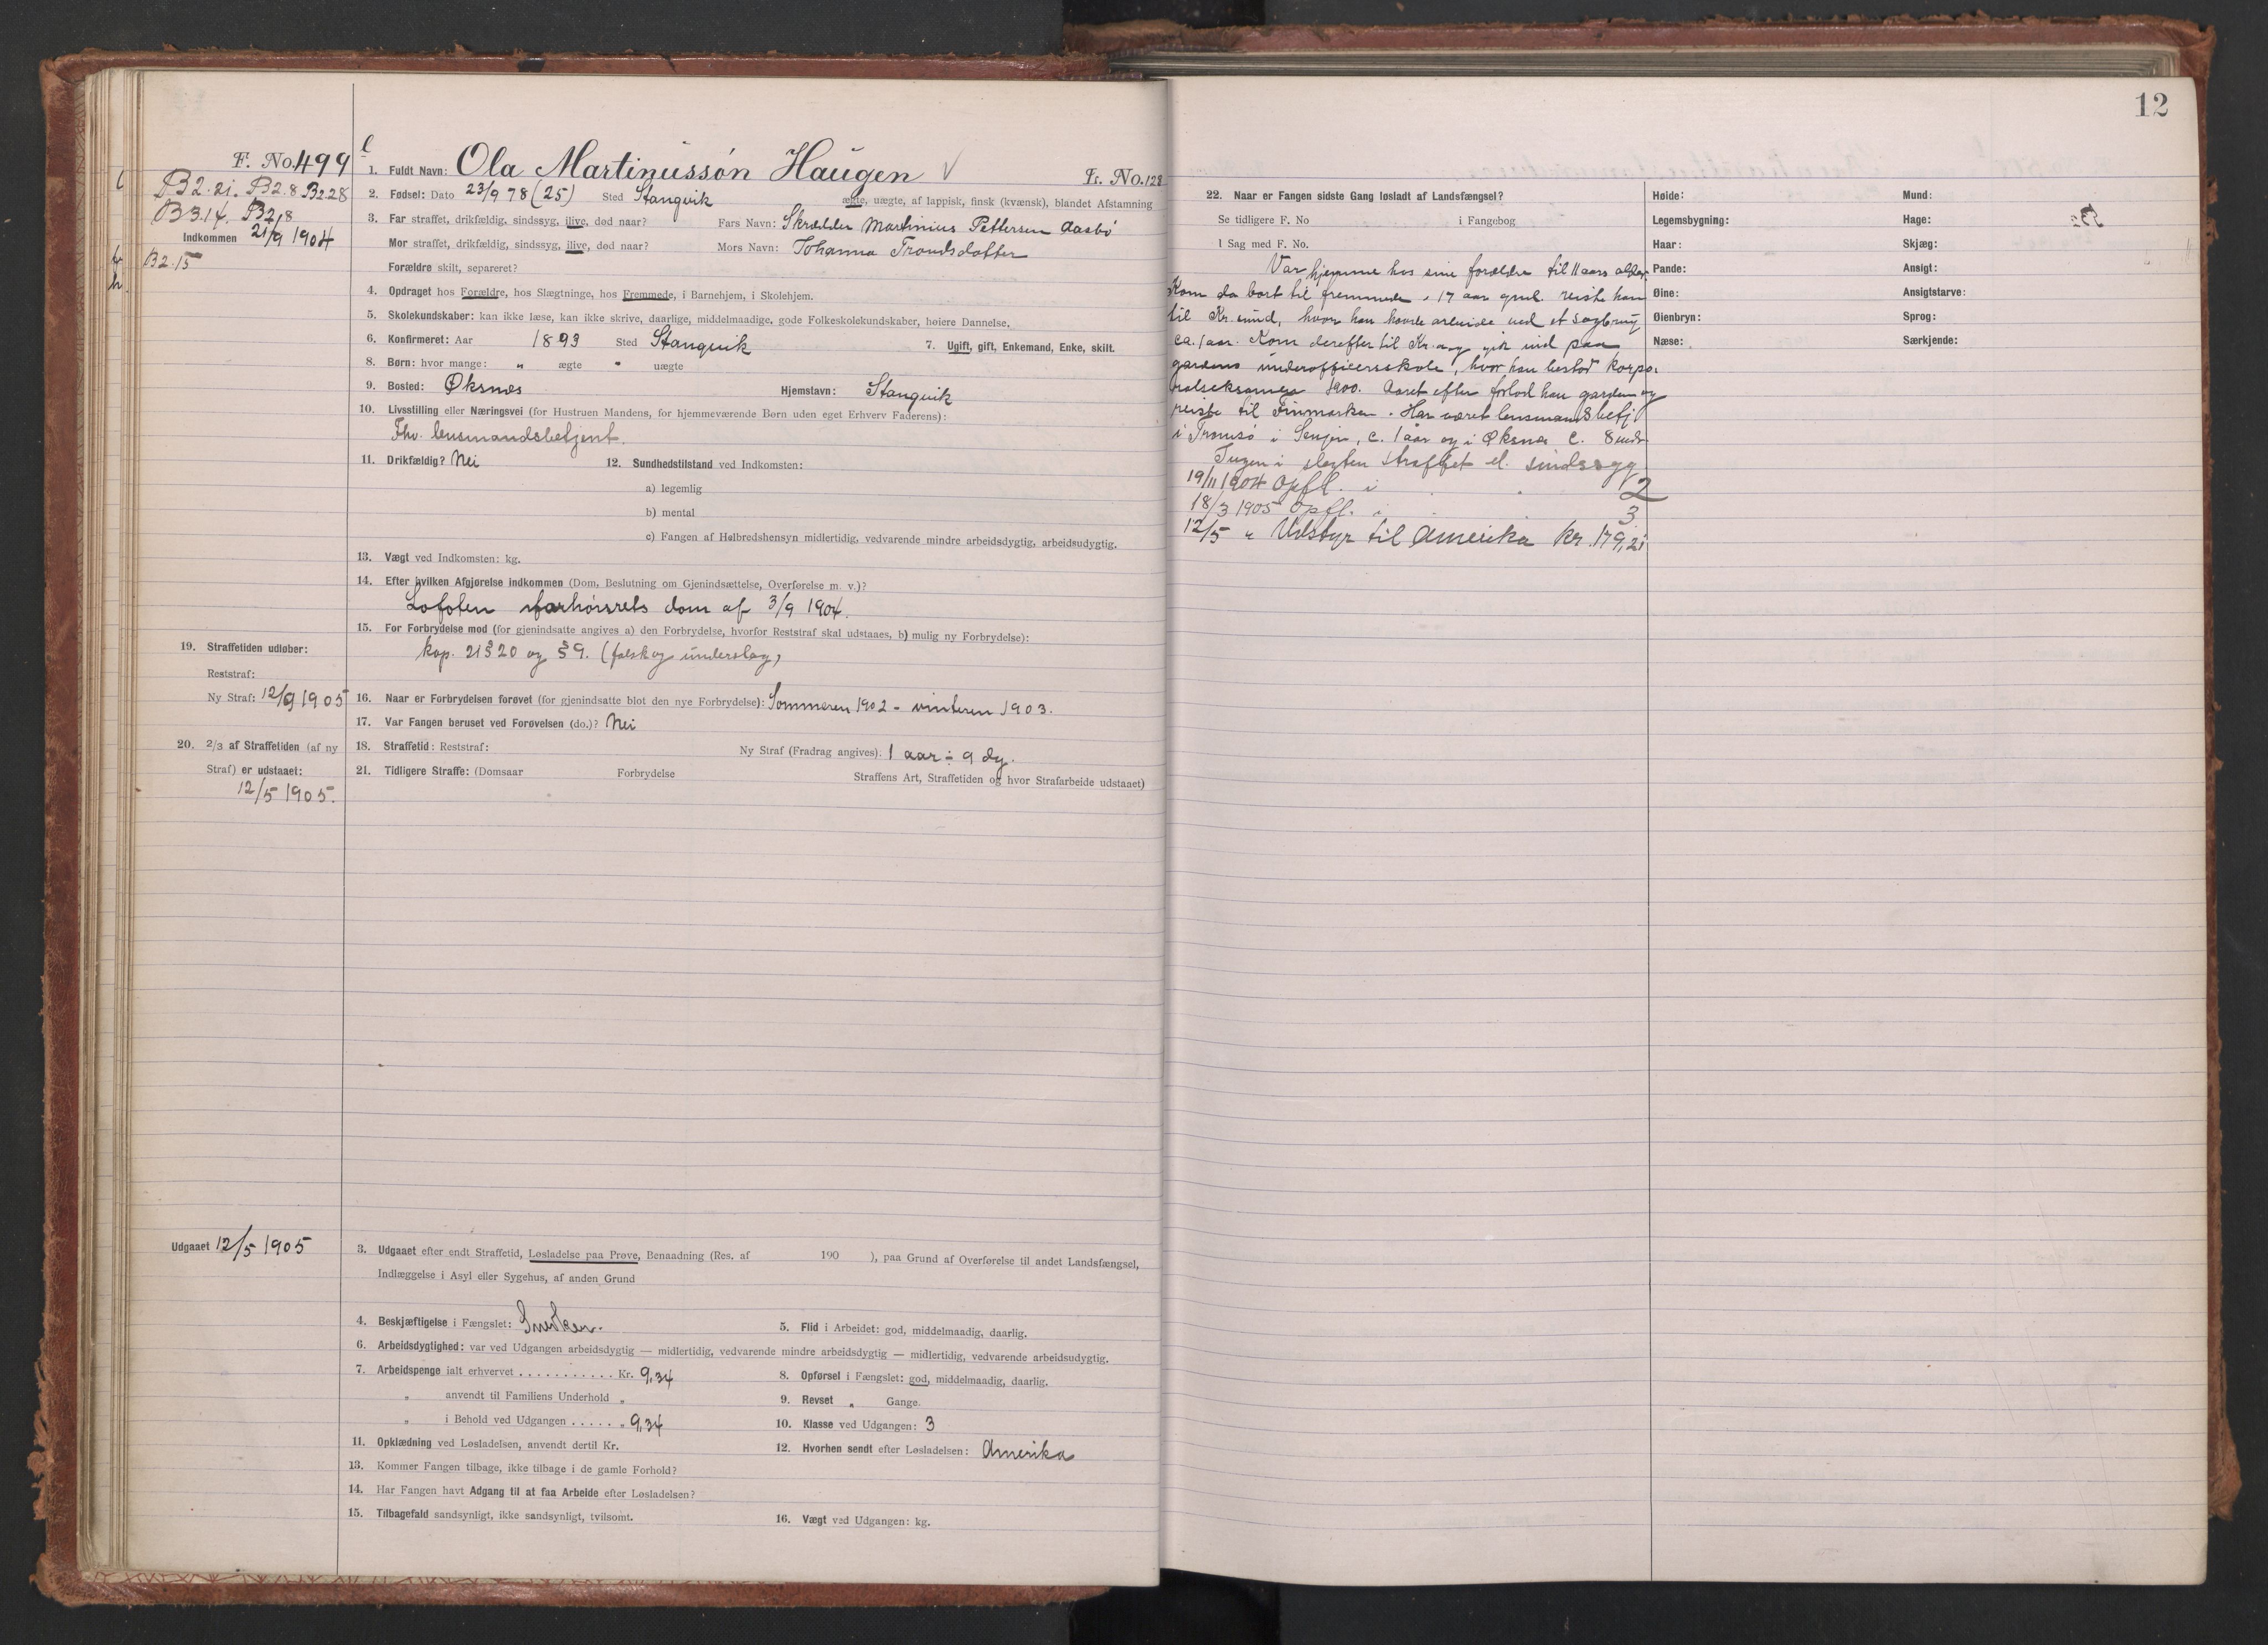 12
F. No. 499
B2.21. B2.8 B2.28
B3.14. B2.8
Indkommen 21/9 1904
B2.15
1. Fuldt Navn: Ola Martinussøn Haugen
Fr. No. 128
2. Fødsel: Dato 23/9 78 (25) Sted Stangvik ægte, uægte, af lappisk, finsk (kvænsk), blandet Afstamning
3. Far straffet, drikfældig, sindssyg, ilive, død naar? Fars Navn: Skrædder Martinius Pettersen Aasbø
Mor straffet, drikfældig, sindssyg, ilive, død naar? Mors Navn: Johanna Trondsdatter
Forældre skilt, separeret?
4. Opdraget hos Forældre, hos Slægtninge, hos Fremmede, i Barnehjem, i Skolehjem.
5. Skolekundskaber: kan ikke læse, kan ikke skrive, daarlige, middelmaadige, gode Folkeskolekundskaber, høiere Dannelse.
6. Konfirmeret: Aar 1893 Sted Stangvik 7. Ugift, gift, Enkemand, Enke, skilt.
8. Børn: hvor mange: " ægte " uægte
9. Bosted: Øksnes Hjemstavn: Stangvik
10. Livsstilling eller Næringsvei (for Hustruen Mandens, for hjemmeværende Børn uden eget Erhverv Faderens):
Fhv. lensmandsbetjent.
11. Drikfældig? Nei 12. Sundhedstilstand ved Indkomsten:
a) legemlig
b) mental
c) Fangen af Helbredshensyn midlertidig, vedvarende mindre arbeidsdygtig, arbeidsudygtig.
13. Vægt ved Indkomsten: kg.
14. Efter hvilken Afgjørelse indkommen (Dom, Beslutning om Gjenindsættelse, Overførelse m. v.)?
Lofoten forhørsrets dom af 3/9 1904.
15. For Forbrydelse mod (for gjenindsatte angives a) den Forbrydelse, hvorfor Reststraf skal udstaaes, b) mulig ny Forbrydelse):
kap. 21 § 20 og § 9. (falsk og underslag)
19. Straffetiden udløber:
Reststraf:
Ny Straf: 12/9 1905
16. Naar er Forbrydelsen forøvet (for gjenindsatte blot den nye Forbrydelse): Sommeren 1902 - vinteren 1903.
17. Var Fangen beruset ved Forøvelsen (do.)? Nei
20. 2/3 af Straffetiden (af ny
Straf) er udstaaet:
12/5 1905.
18. Straffetid: Reststraf: Ny Straf (Fradrag angives). 1 aar ÷ 9 dg.
21. Tidligere Straffe: (Domsaar Forbrydelse Straffens Art, Straffetiden og hvor Strafarbeide udstaaet)
Udgaaet 12/5 1905
3. Udgaaet efter endt Straffetid, Løsladelse paa Prøve, Benaadning (Res. af 190 ), paa Grund af Overførelse til andet Landsfængsel,
Indlæggelse i Asyl eller Sygehus, af anden Grund
4. Beskjæftigelse i Fængslet: Snedker. 5. Flid i Arbeidet: god, middelmaadig, daarlig.
6. Arbeidsdygtighed: var ved Udgangen arbeidsdygtig — midlertidig, vedvarende mindre arbeidsdygtig — midlertidig, vedvarende arbeidsudygtig.
7. Arbeidspenge ialt erhvervet . . . . . . . . . . . Kr. 9,34 8. Opførsel i Fængslet: god, middelmaadig, daarlig.
" anvendt til Familiens Underhold " 9. Revset " Gange.
" i Behold ved Udgangen . . . . . " 9,34 10. Klasse ved Udgangen: 3
11. Opklædning ved Løsladelsen, anvendt dertil Kr. 12. Hvorhen sendt efter Løsladelsen: Amerika
13. Kommer Fangen tilbage, ikke tilbage i de gamle Forhold?
14. Har Fangen havt Adgang til at faa Arbeide efter Løsladelsen?
15. Tilbagefald sandsynligt, ikke sandsynligt, tvilsomt. 16. Vægt ved Udgangen: kg.
22. Naar er Fangen sidste Gang løsladt af Landsfængsel?
Se tidligere F. No i Fangebog
I Sag med F. No.
Var hjemme hos sine forældre til 11 aars alder.
Kom da bort til fremmede. 17 aar gml. reiste han
til Kr.sund, hvor han havde arbeide ved et sagbrug
ca. 1 aar. Kom derefter til Kr.a og gik ind paa
gardens underofficersskole, hvor han bestod korpo-
ralseksamen 1900. Aaret efter forlod han garden og
reiste til Finmarken. Har været lensmandsbetj.
i Tromsø i Senjen, c. 1 aar og i Øksnes c. 8 mdr.
Ingen i slegten straffet el. sindssyg
19/11 1904 Opfl. i 2
18/3 1905 Opfl. i 3
12/5 " Udstyr til Amerika Kr. 179,21
Høide:
Legemsbygning:
Haar:
Pande:
Øine:
Øienbryn:
Næse:
Mund:
Hage:
Skjæg:
Ansigt:
Ansigtsfarve:
Sprog:
Særkjende: